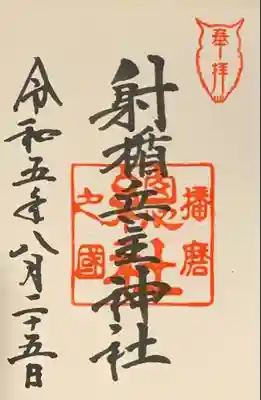 奉拝
射楯兵主神社
播磨
之國
總社
令和五年八月二十五日